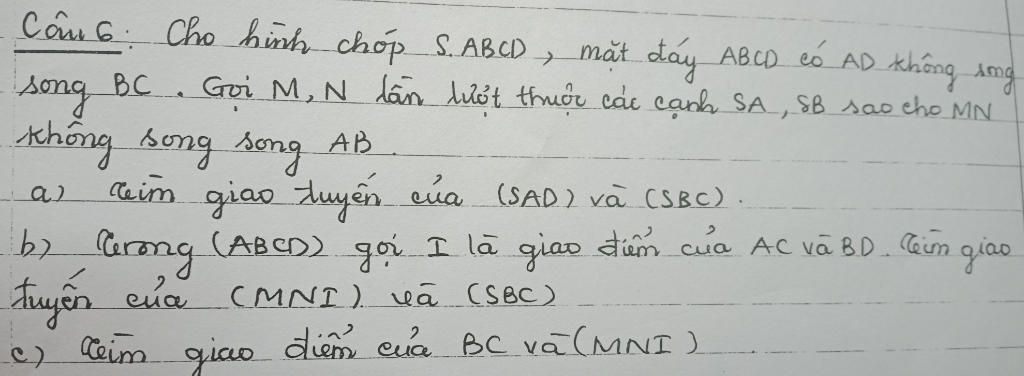 Câu 6: Cho hình chóp S.ABCD, mặt đáy ABCD có AD không song
song BC. Gọi M, N lần lượt thuộc các cạnh SA, SB sao cho MN
không song song AB.
a) Tìm giao tuyến của (SAD) và (SBC).
b) Trong (ABCD) gọi I là giao điểm của AC và BD. Tìm giao
tuyến của (MNI) và (SBC)
c) Tìm giao điểm của BC và (MNI)